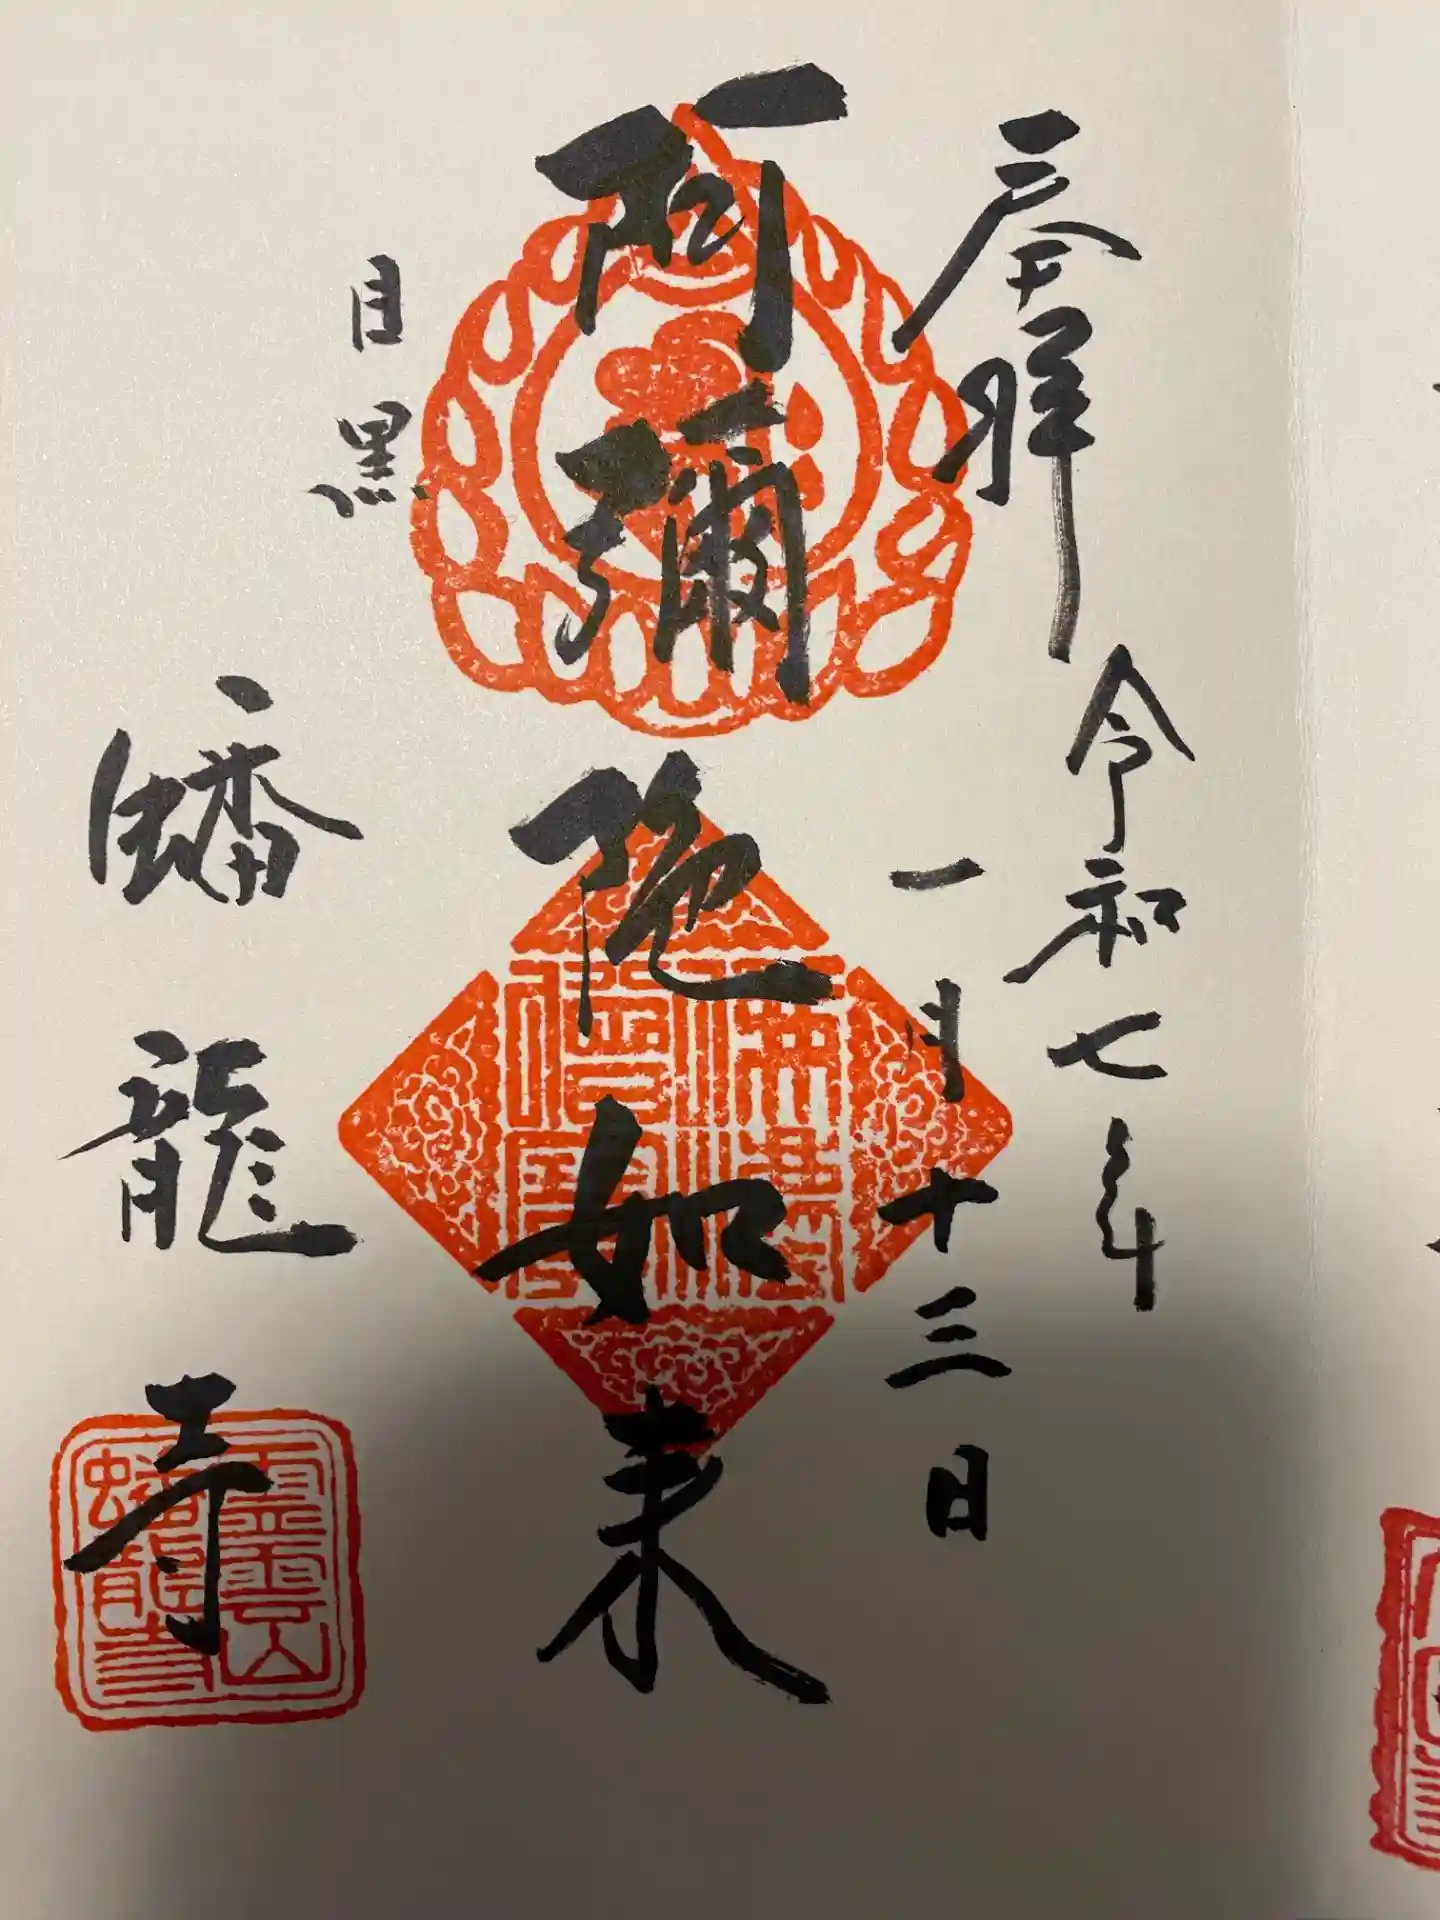 奉拝
令和七年
一月十三日
阿彌陀如来
目黒
蟠龍寺
霊雲山
蟠龍寺